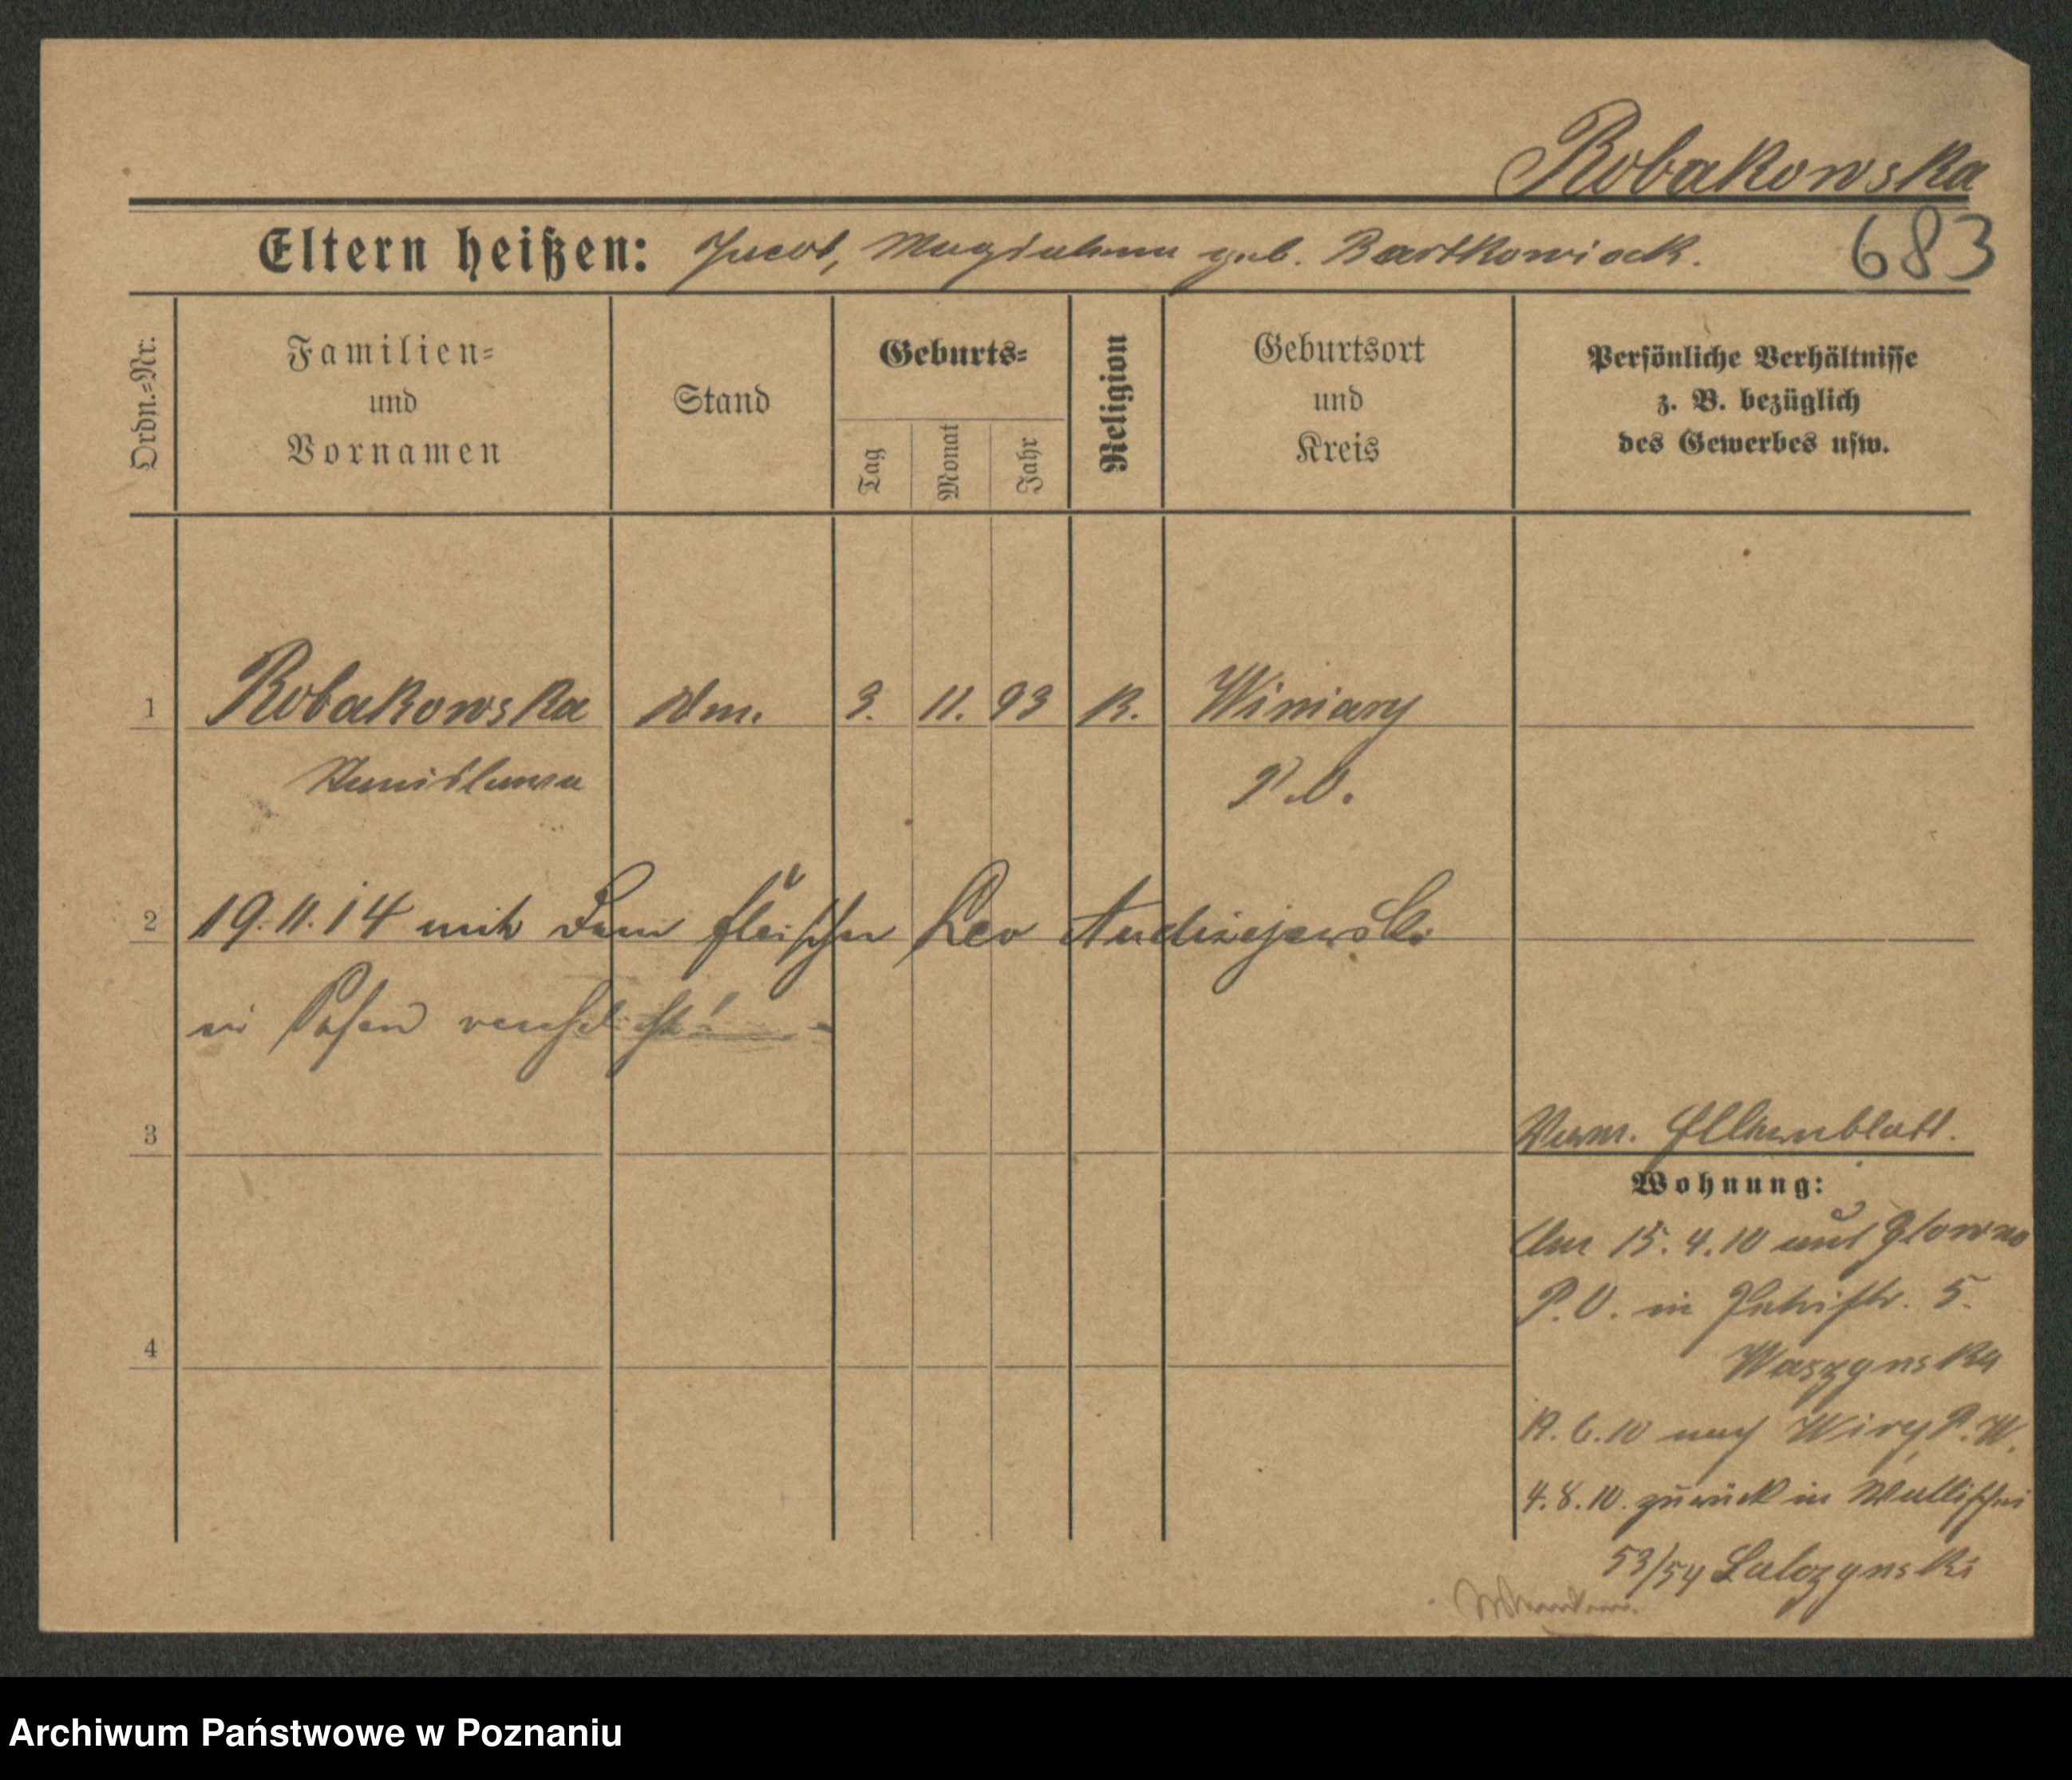 Robakowska
683
Eltern heißen: Jacob, Magdalena geb. Bartkowiack.
Ordn.=Nr.
Familien=
und
Vornamen
Stand
Geburts=
Tag
Monat
Jahr
Religion
Geburtsort
und
Kreis
Persönliche Verhältnisse
z. B. bezüglich
des Gewerbes usw.
1 Robakowska 3. 11. 93 K. Winiary
Stanislawa P.O.
2 19.11.14 mit dem Fleischer Leo Andrzejewski
in Posen verehelicht!
3
Verm. Elternblatt.
Wohnung:
Am 15.4.10 aus Glowno
P.O. in Petristr. 5.
Waszynska
4
19.6.10 nach Wiry P.W.
4.8.10. zurück in Wallischei
53/54
Archiwum Państwowe w Poznaniu